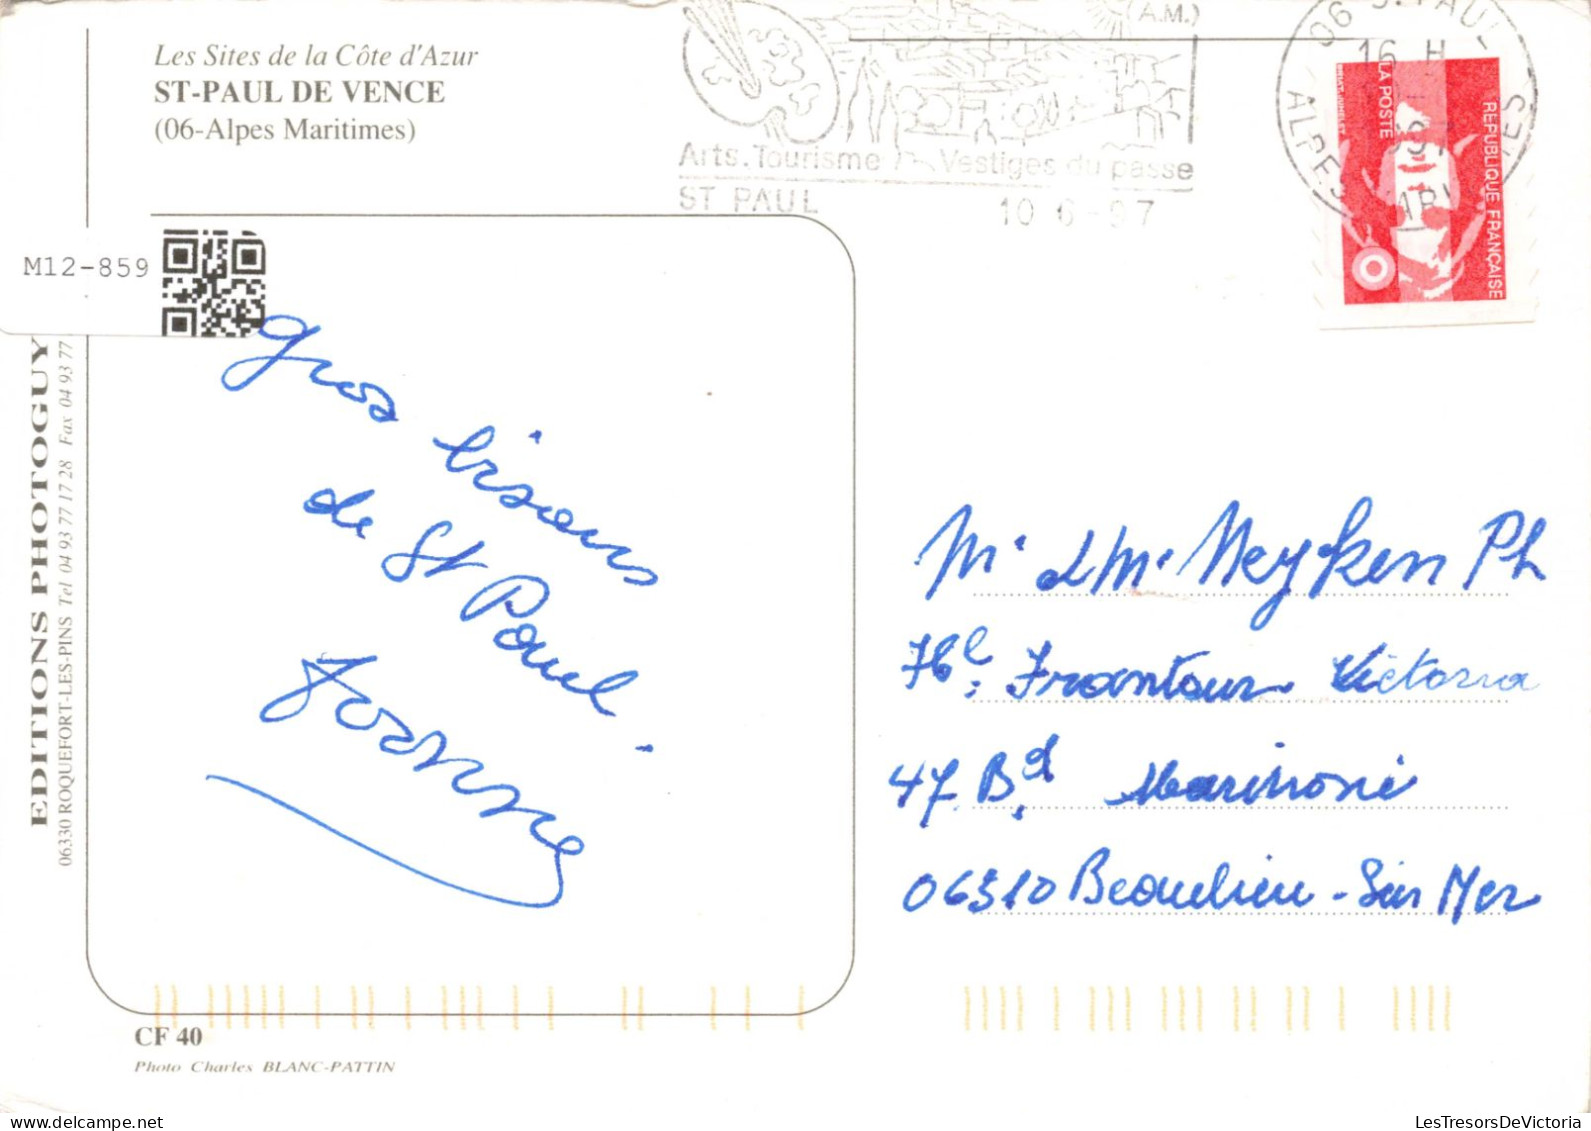 Les Sites de la Côte d'Azur
ST-PAUL DE VENCE
(06-Alpes Maritimes)
(A.M.)
Arts. Tourisme Vestiges du passe
ST PAUL 10 6-97
16 H
LA POSTE
REPUBLIQUE FRANÇAISE
M12-859
EDITIONS PHOTOGUY
06330 ROQUEFORT-LES-PINS Tel 04 93 77 17 28 Fax 04 93 77
gros bisous
de St Paul.
Joanne
Mr & Me Meyken Ph
Frantour Victoria
47 Bd. Marinoni
06310 Beaulieu-Sur Mer
CF 40
Photo Charles BLANC-PATTIN
LesTresorsDeVictoria